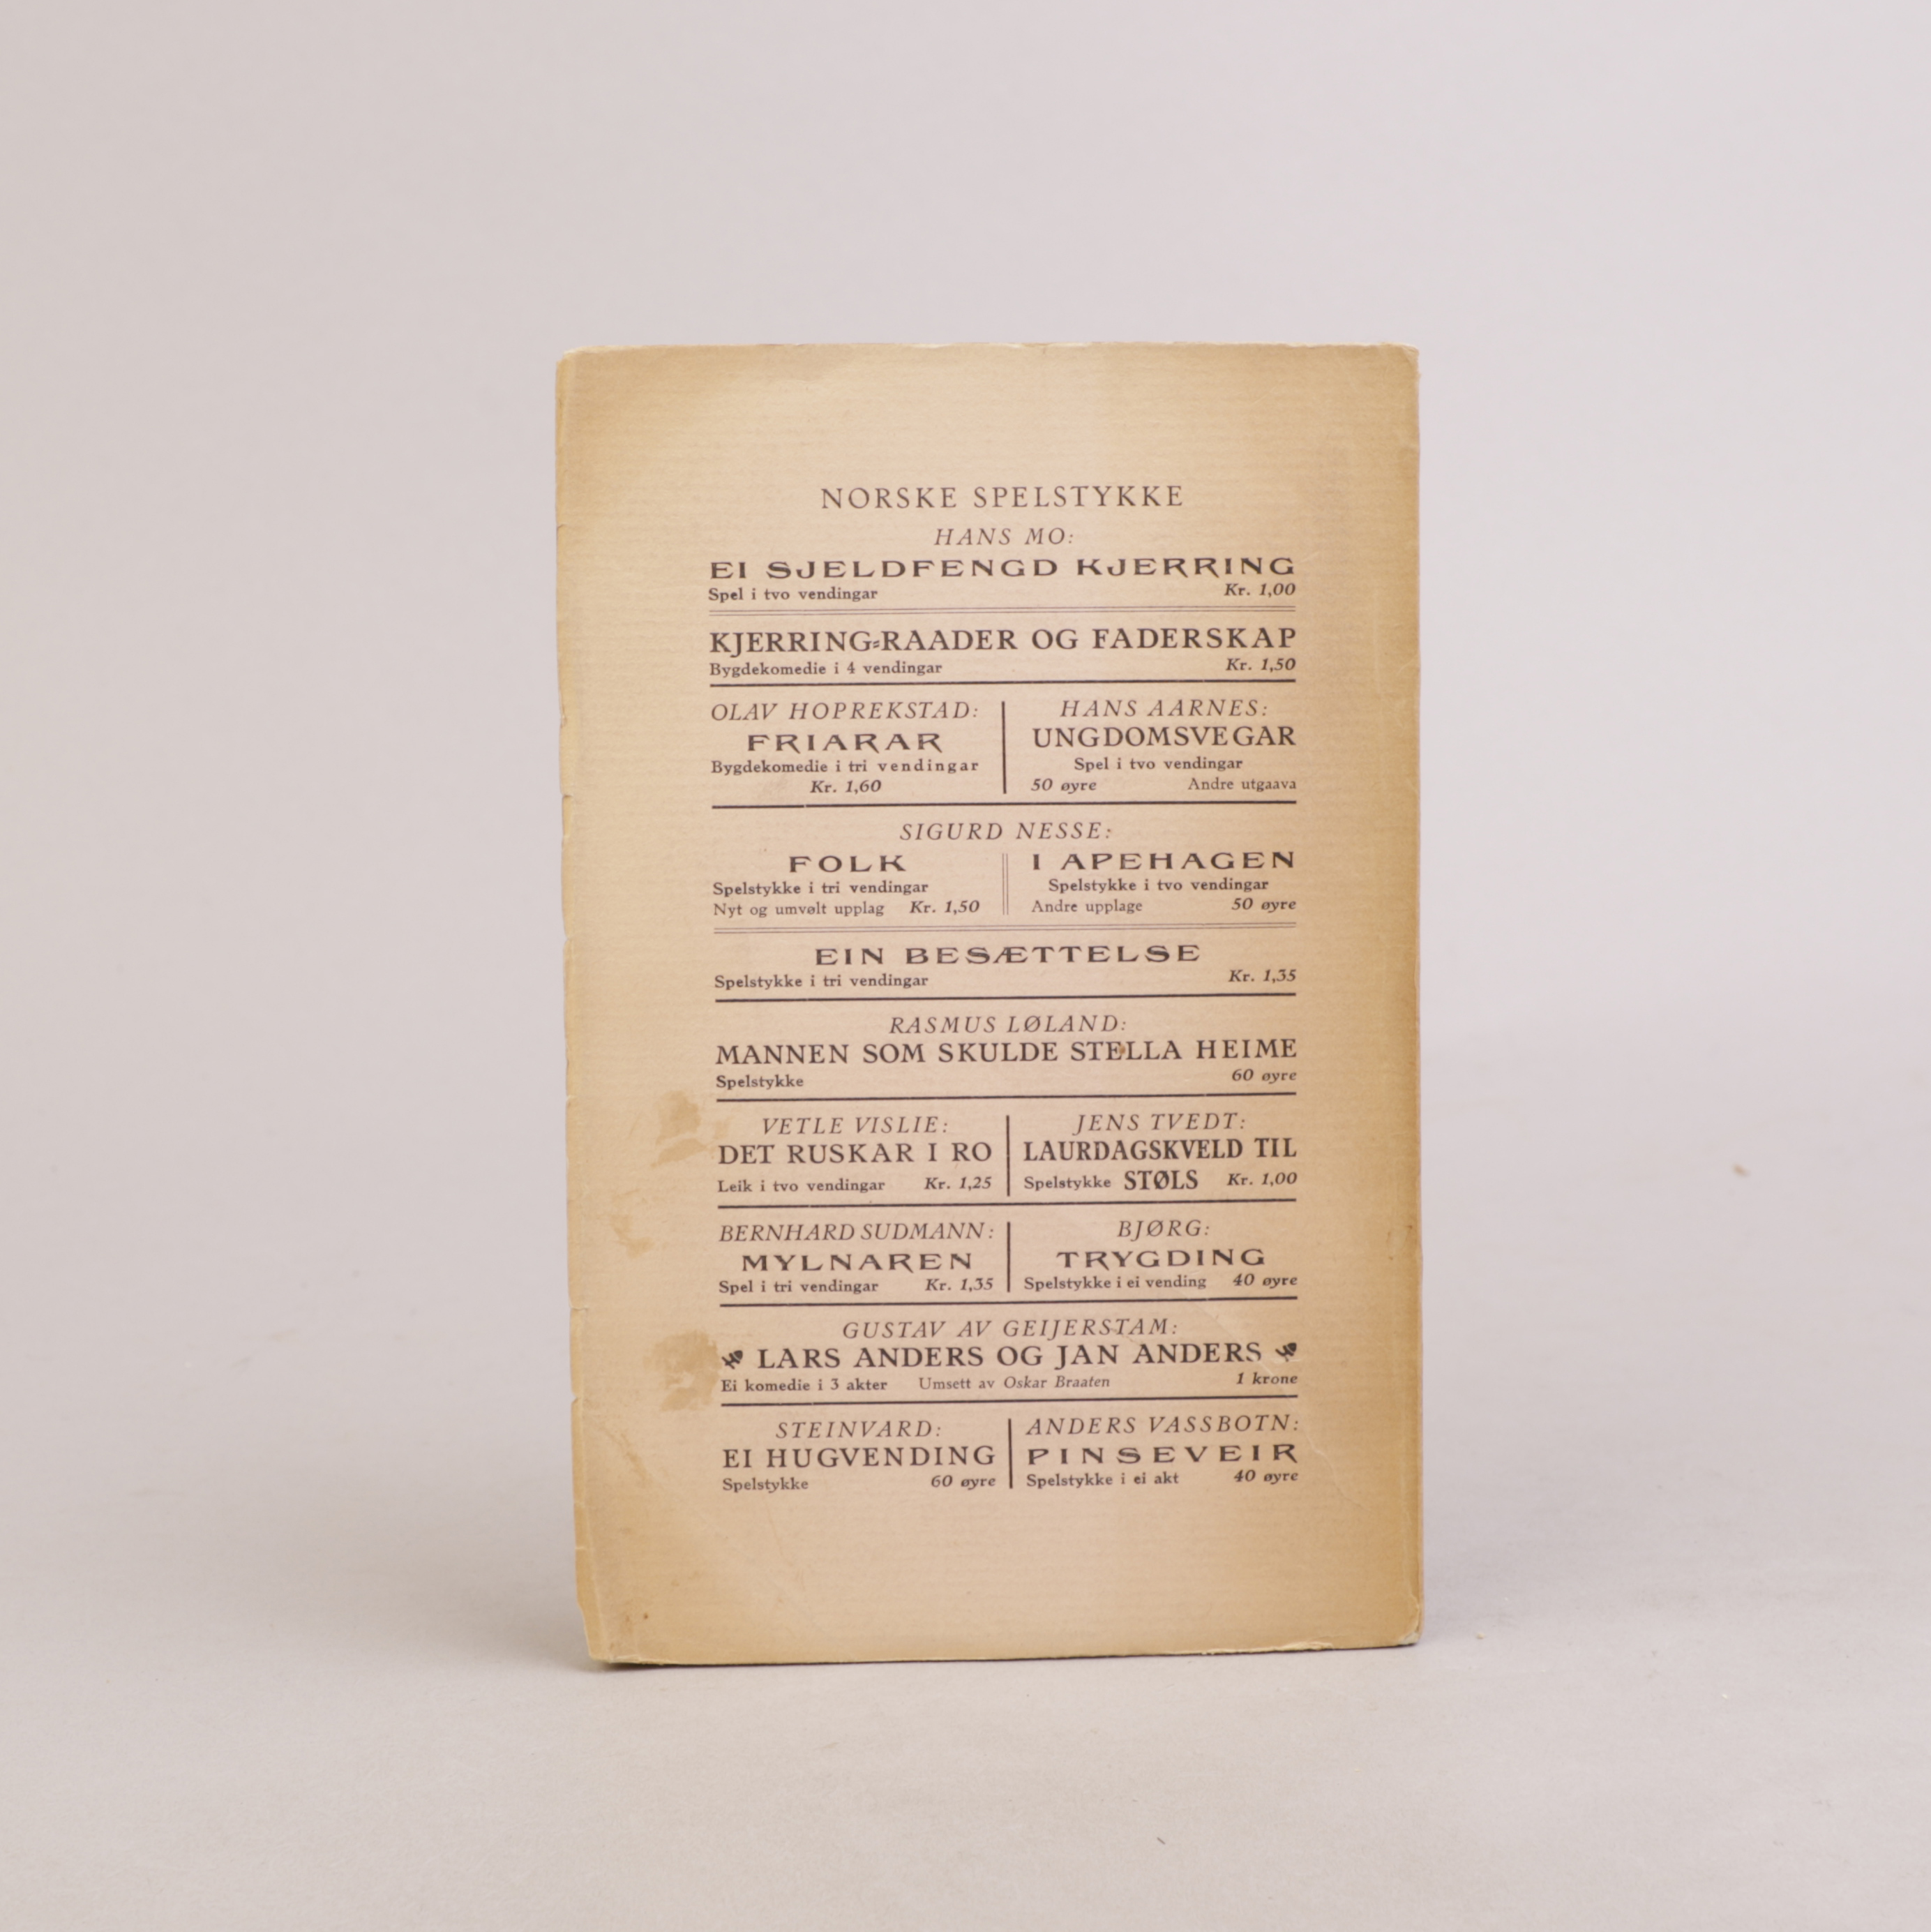 NORSKE SPELSTYKKE
HANS MO:
EI SJELDFENGD KJERRING
Spel i tvo vendingar Kr. 1,00
KJERRING-RAADER OG FADERSKAP
Bygdekomedie i 4 vendingar Kr. 1,50
OLAV HOPREKSTAD:
FRIARAR
Bygdekomedie i tri vendingar
Kr. 1,60
HANS AARNES:
UNGDOMSVEGAR
Spel i tvo vendingar
50 øyre Andre utgaava
SIGURD NESSE:
FOLK
Spelstykke i tri vendingar
Nyt og umvølt upplag Kr. 1,50
I APEHAGEN
Spelstykke i tvo vendingar
Andre upplage 50 øyre
EIN BESÆTTELSE
Spelstykke i tri vendingar Kr. 1,35
RASMUS LØLAND:
MANNEN SOM SKULDE STELLA HEIME
Spelstykke 60 øyre
VETLE VISLIE:
DET RUSKAR I RO
Leik i tvo vendingar Kr. 1,25
JENS TVEDT:
LAURDAGSKVELD TIL
Spelstykke STØLS Kr. 1,00
BERNHARD SUDMANN:
MYLNAREN
Spel i tri vendingar Kr. 1,35
BJØRG:
TRYGDING
Spelstykke i ei vending 40 øyre
GUSTAV AV GEIJERSTAM:
LARS ANDERS OG JAN ANDERS
Ei komedie i 3 akter Umsett av Oskar Braaten 1 krone
STEINVARD:
EI HUGVENDING
Spelstykke 60 øyre
ANDERS VASSBOTN:
PINSEVEIR
Spelstykke i ei akt 40 øyre